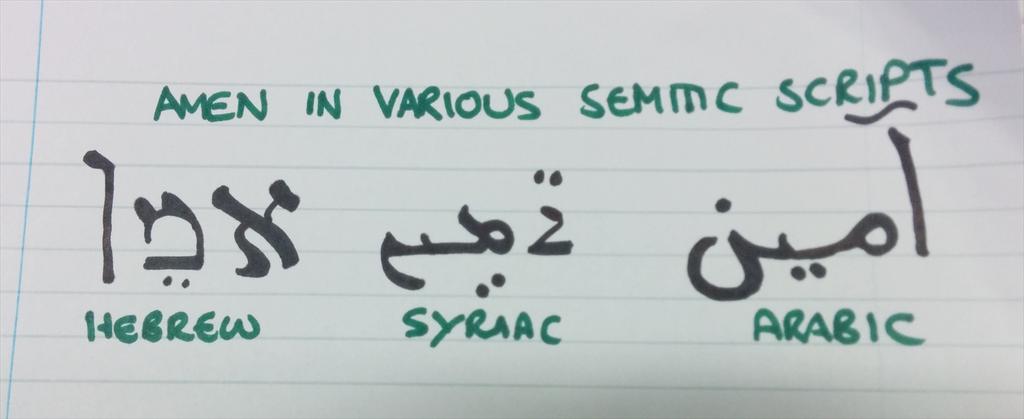 AMEN IN VARIOUS SEMITIC SCRIPTS
אמֵן ܐܵܡܹܝܢ آمين
HEBREW SYRIAC ARABIC